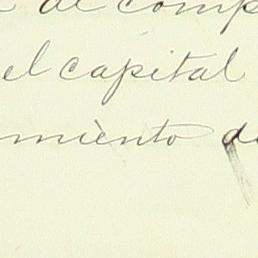 de comp
el capital
miento de